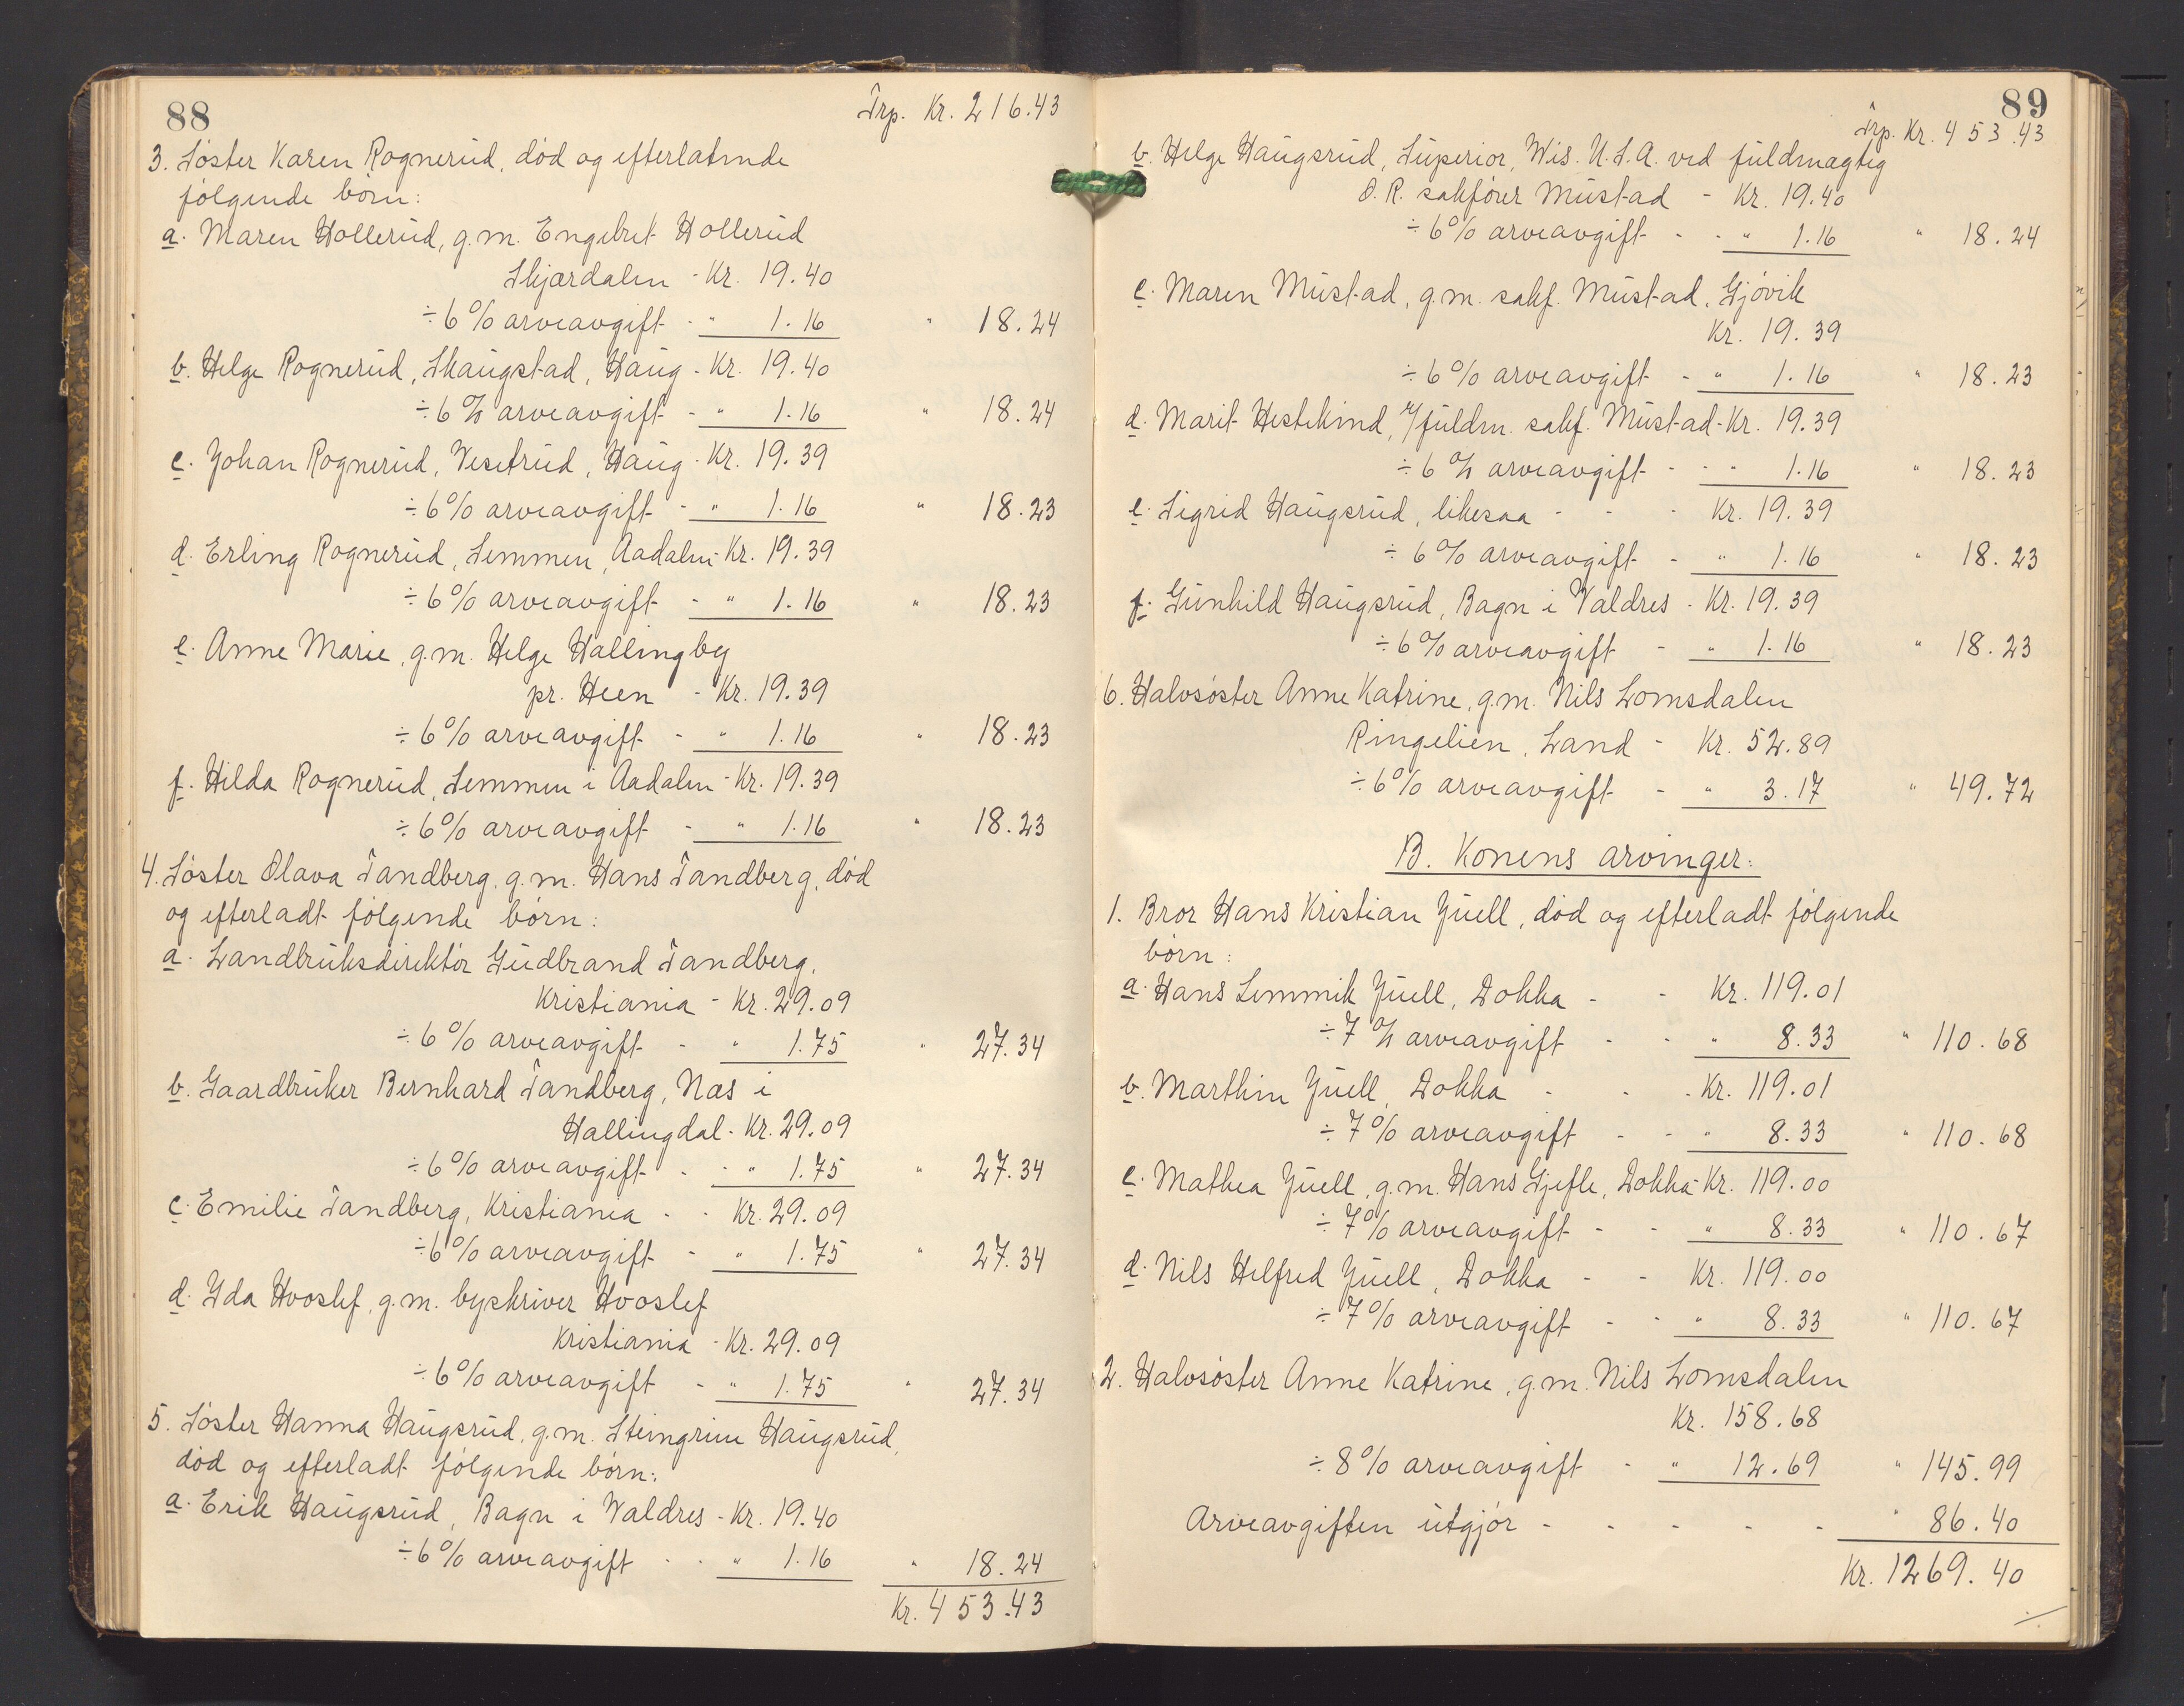 88
Trp. Kr. 216.43
3. Søster Karen Rognerud, død og efterlatende
følgende børn:
a. Maren Hollerud, g.m. Engebret Hollerud
Skjærdalen - Kr. 19.40
÷ 6 % arveavgift - " 1.16 " 18.24
b. Helge Rognerud, Skaugstad, Haug - Kr. 19.40
÷ 6 % arveavgift - " 1.16 " 18.24
c. Johan Rognerud, Vesetrud, Haug - Kr. 19.39
÷ 6 % arveavgift - " 1.16 " 18.23
d. Erling Rognerud, Semmen, Aadalen - Kr. 19.39
÷ 6 % arveavgift - " 1.16 " 18.23
e. Anne Marie, g.m. Helge Hallingby
pr. Heen - Kr. 19.39
÷ 6 % arveavgift - " 1.16 " 18.23
f. Hilda Rognerud, Semmen i Aadalen - Kr. 19.39
÷ 6 % arveavgift - " 1.16 " 18.23
4. Søster Olava Tandberg, g.m. Hans Tandberg, død
og efterladt følgende børn:
a. Landbruksdirektør Gudbrand Tandberg,
Kristiania - Kr. 29.09
÷ 6 % arveavgift - " 1.75 " 27.34
b. Gaardbruker Bernhard Tandberg, Næs i
Hallingdal - Kr. 29.09
÷ 6 % arveavgift - - " 1.75 " 27.34
c. Emilie Tandberg, Kristiania - - Kr. 29.09
÷ 6 % arveavgift - " 1.75 " 27.34
d. Yda Hvoslef, g.m. byskriver Hvoslef
Kristiania - Kr. 29.09
÷ 6 % arveavgift - " 1.75 " 27.34
5. Søster Hanna Haugsrud, g.m. Steingrim Haugsrud,
død og efterladt følgende børn:
a. Erik Haugsrud, Bagn i Valdres - Kr. 19.40
÷ 6 % arveavgift - - " 1.16 " 18.24
Kr. 453.43
89
Trp. Kr. 453.43
b. Helge Haugsrud, Superior, Wis. U.S.A. ved fuldmægtig
O.R. sakfører Mustad - Kr. 19.40
÷ 6 % arveavgift - - " 1.16 " 18.24
c. Maren Mustad, g.m. sakf. Mustad, Gjøvik
Kr. 19.39
÷ 6 % arveavgift - " 1.16 " 18.23
d. Marit Hestekind, v/fuldm. sakf. Mustad - Kr. 19.39
÷ 6 % arveavgift - - " 1.16 " 18.23
e. Sigrid Haugsrud, likesaa - - - Kr. 19.39
÷ 6 % arveavgift - " 1.16 " 18.23
f. Gunhild Haugsrud, Bagn i Valdres - Kr. 19.39
÷ 6 % arveavgift - " 1.16 " 18.23
6. Halvsøster Anne Katrine, g.m. Nils Lomsdalen
Ringelien, Land - Kr. 52.89
÷ 6 % arveavgift - " 3.17 " 49.72
B. Konens arvinger:
1. Bror Hans Kristian Juell, død og efterladt følgende
børn:
a. Hans Lemmik Juell, Dokka - - Kr. 119.01
÷ 7 % arveavgift - - " 8.33 " 110.68
b. Marthin Juell, Dokka - - - Kr. 119.01
÷ 7 % arveavgift - - " 8.33 " 110.68
c. Mathea Juell, g.m. Hans Gjefle, Dokka - Kr. 119.00
÷ 7 % arveavgift - - " 8.33 " 110.67
d. Nils Helfred Juell, Dokka - - Kr. 119.00
÷ 7 % arveavgift - - " 8.33 " 110.67
2. Halvsøster Anne Katrine, g.m. Nils Lomsdalen
Kr. 158.68
÷ 8 % arveavgift - " 12.69 " 145.99
Arveavgiften utgjør - - - - - " 86.40
Kr. 1269.40